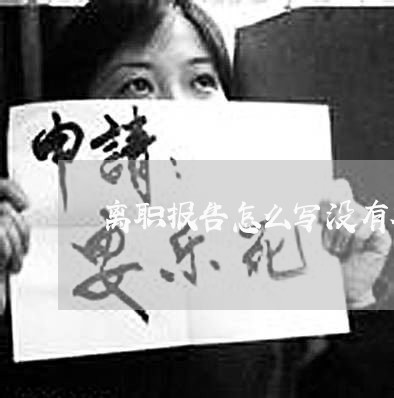 申請：
离职报告怎么写没有
安乐死